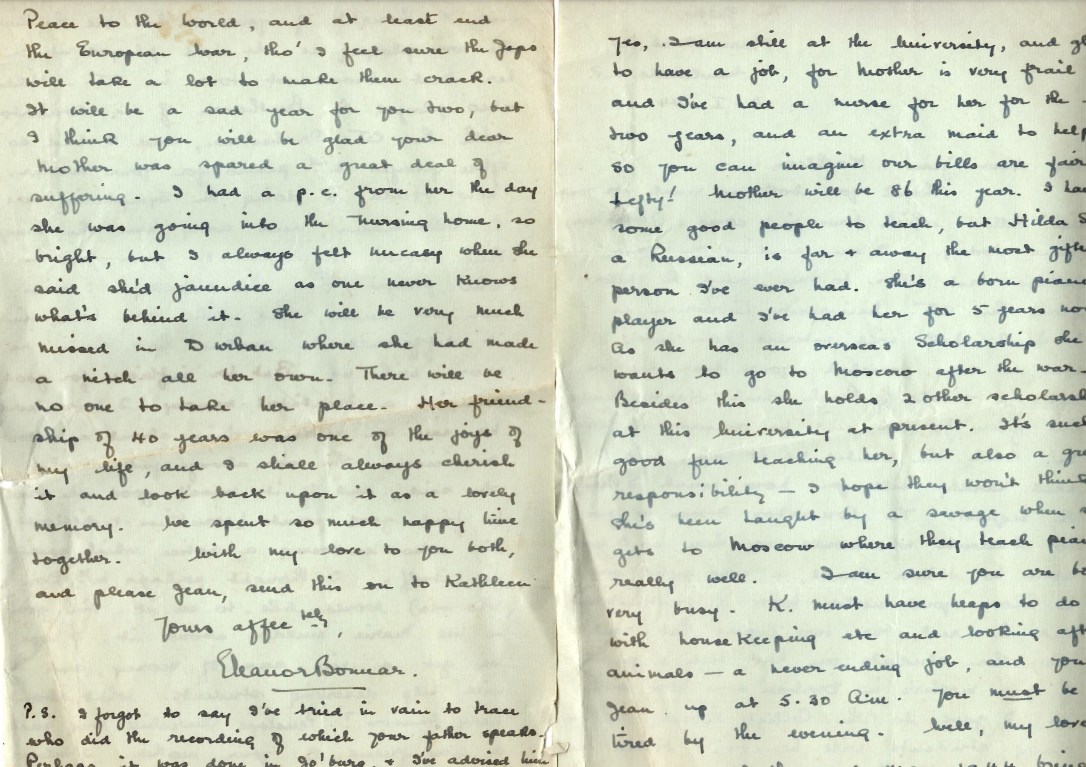 Peace to the world, and at least end
the European war, tho' I feel sure the Japs
will take a lot to make them crack.
It will be a sad year for you two, but
I think you will be glad your dear
mother was spared a great deal of
suffering. I had a p.c. from her the day
she was going into the nursing home, so
bright, but I always felt uneasy when she
said she'd jaundice as one never knows
what's behind it. She will be very much
missed in Durban where she had made
a nitch all her own. There will be
no one to take her place. Her friend-
ship of 40 years was one of the joys of
my life, and I shall always cherish
it and look back upon it as a lovely
memory. We spent so much happy time
together. With my love to you both,
and please Jean, send this on to Kathleen
Yours affectely,
Eleanor Bonnar.
P.S. I forgot to say I've tried in vain to trace
who did the recording of which your father speaks.
Perhaps it was done in Jo'burg, & I've advised him
Yes, I am still at the University, and gl
to have a job, for Mother is very frail
and I've had a nurse for her for the
two years, and an extra maid to help
so you can imagine our bills are fair
hefty! Mother will be 86 this year. I ha
some good people to teach, but Hilda S
a Russian, is far & away the most gifte
person I've ever had. She's a born piano
player and I've had her for 5 years no
As she has an overseas Scholarship she
wants to go to Moscow after the war.
Besides this she holds 2 other scholarsh
at this University at present. It's such
good fun teaching her, but also a gre
responsibility — I hope they won't think
she's been taught by a savage when s
gets to Moscow where they teach pian
really well. I am sure you are bo
very busy. K. must have heaps to do
with housekeeping etc and looking aft
animals — a never ending job, and you
Jean up at 5.30 a.m. You must be
tired by the evening. Well, my love